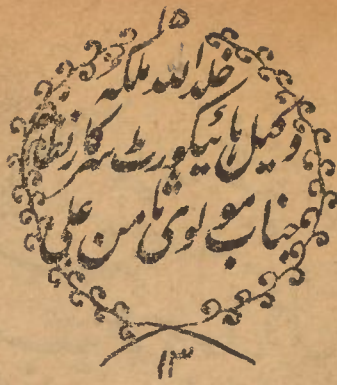 ۱۵
خلد اللہ ملکہ
وکیل ہائیکورٹ سرکار نظام
جناب مولوی ثامن علی
۱۳